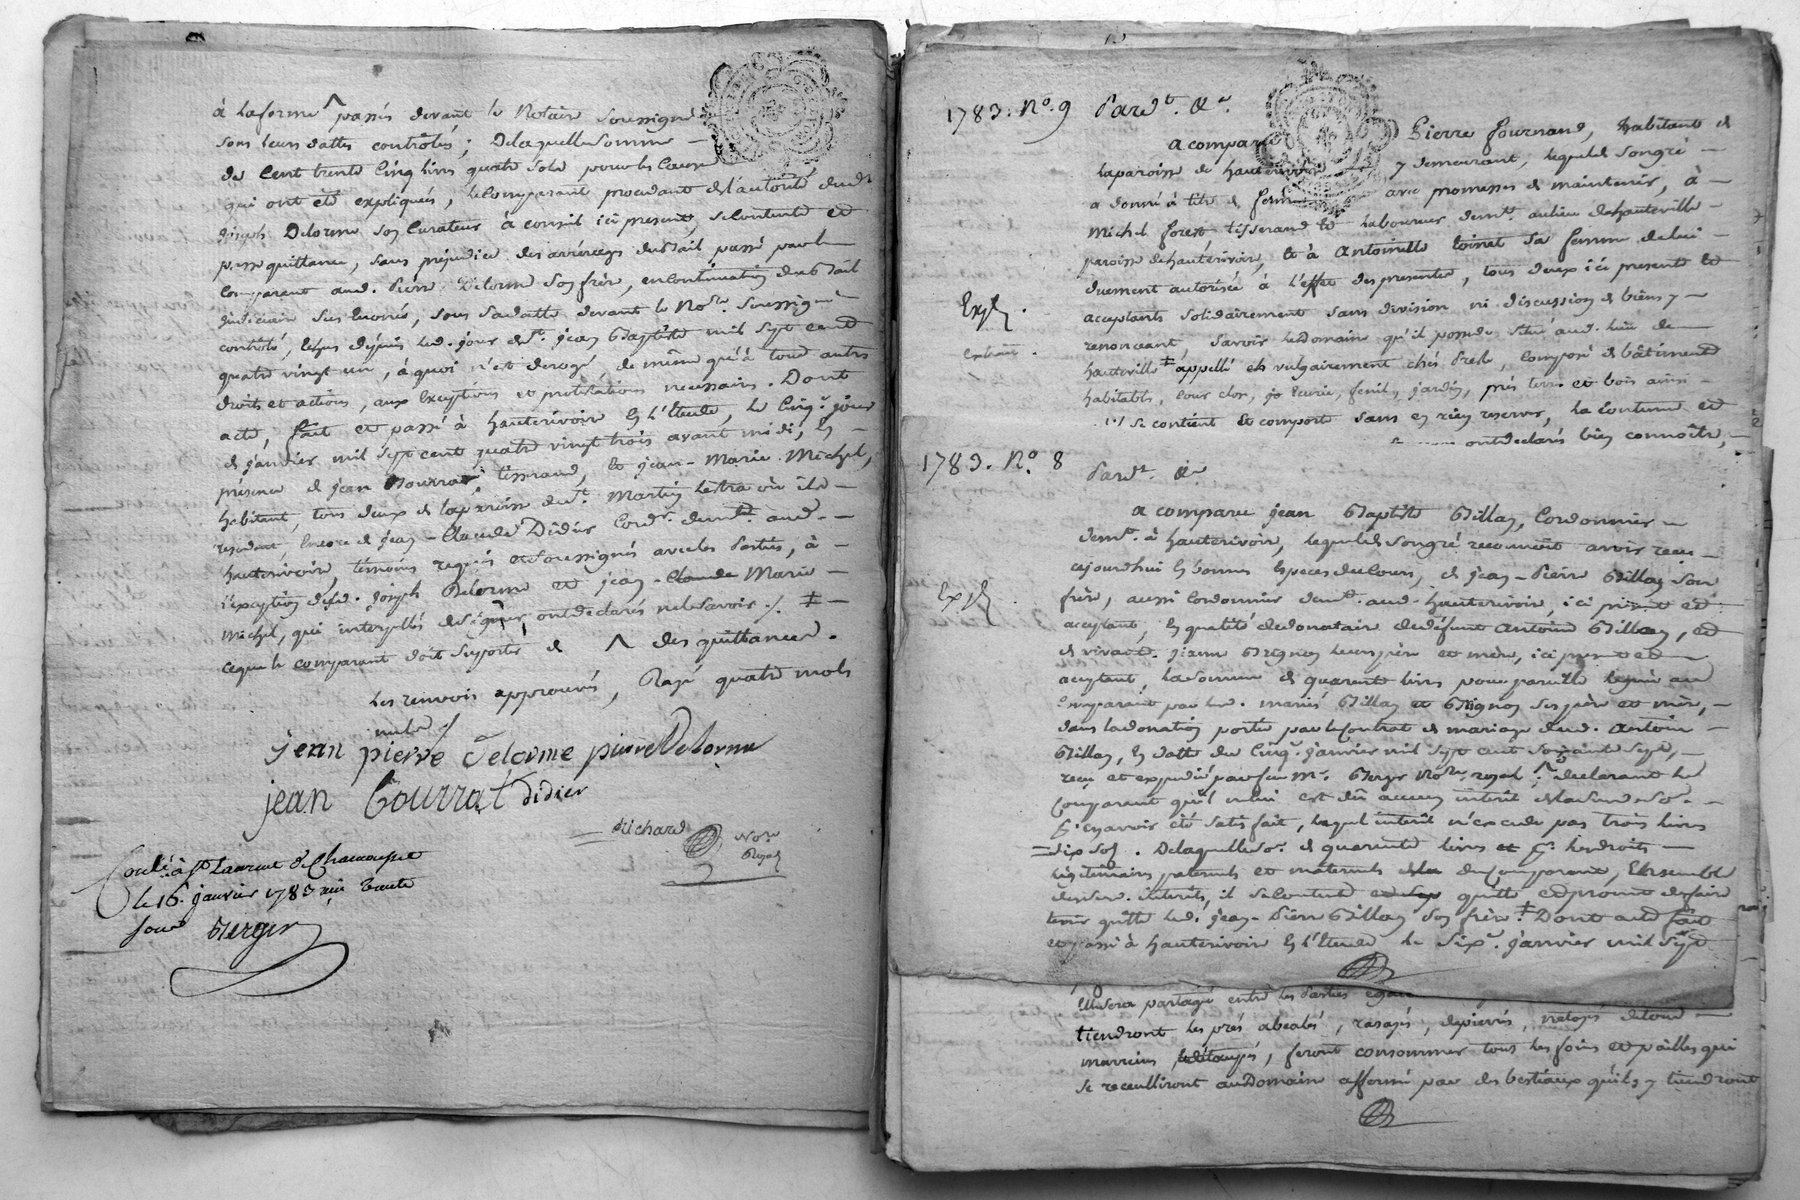 à la forme ^ passés devant le Notaire soussigné
sous leurs dattes contrôlés; Delaquelle somme
de Cent trente Cinq livres quatre sols pour les causes
qui ont été expliqués, le Comparant procedant de l'autorité dud.
Joseph Delorme son Curateur à conseil ici present, se Contente et
passe quittance, sans préjudice des arrérages du Bail passé par le
Comparant aud. Pierre Delorme son frère, en Continuation du Bail
judiciaire sus énoncé, sous sa datte devant le No.re soussigné
contrôlé, échus depuis led. jour de St. jean Baptiste mil sept cent
quatre vingt un, à quoi n'est derogé, de même qu'à tous autres
droits et actions, aux Exceptions et protestations necessaires. Dont
acte, fait et passé à hauterivoire En l'Etude, le Cinq.e jour
de janvier mil sept cent quatre vingt trois avant midi, En
présence de jean Bourrat, tisserand, et jean-Marie Michel,
habitant, tous deux de la paroisse de St. Martin Lestra où ils
resident, Encore de jean-Claude Didier Cord.r demt. aud.
hauterivoire, témoins requis et soussignés avec les Parties, à
l'exception desd. joseph Delorme et jean-Claude Marie
Michel, qui interpellés de signer ont declarés ne le savoir ./. ‡
ce que le comparant doit suporter de ^ des quittances.
les renvois approuvés, Rayé quatre mots
nuls ./
jean pierre delorme pierre Delorme
jean Bourrat didier
Richard No.re Royal
Conlé à St. Laurent de Chamousset
le 16 janvier 1783 reçu trente
sous Berger
1783. No. 9 Pard.t &a.
a comparu Pierre fournand, habitant de
la paroisse de hauterivoire y demeurant, lequel de son gré
a donné à titre de ferme avec promesses de maintenir, à
Michel forest tisserand et laboureur demt. au lieu de hauteville
paroisse de hauterivoire, et à Antoinette toinet sa femme de lui
duement autorisée à l'effet des presentes, tous deux ici presents et
acceptants solidairement sans division ni discussion de biens y
Expé.
renonceant, savoir le domaine qu'il possede situé aud. lieu de
Extrait.
hauteville ‡ appellé et vulgairement chés Presle, composé de bâtiments
habitables, Cour clos, Ecurie, fenil, jardin, prés terres et bois ainsi
se contient et comporte sans en rien reserver, la Contenue et
ont declarés bien connoître,
1783. No. 8 Pard.t &a.
a comparu jean Baptiste Billay, Cordonnier
demt. à hauterivoire, lequel de son gré reconnoît avoir reçu
aujourd'hui En bonnes Especes du Cours, de jean-Pierre Billay son
Expé
frère, aussi Cordonnier demt. aud. hauterivoire, ici present et
acceptant, En qualité de donataire de défunt Antoine Billay, et
de vivante jeanne Brignon leurs père et mère, ici presente et
acceptant, la somme de quarente livres pour pareille leguée au
Comparant par led. mariés Billay et Brignon ses père et mère,
dans la donation portée par le Contrat de mariage dud. Antoine
Billay, En datte du Cinq.e janvier mil sept cent soixante sept,
reçu et expedié par feu Me. Berger No.re royal. declarant led.
Comparant qu'il ne lui est dû aucun interêt de lad. so.e
pour En avoir été satisfait, lequel interêt n'excede pas trois livres
dix sols. Delaquelle so.e de quarente livres et p.r les droits
légitimaires paternels et maternels du Comparant, Ensemble
desd. interêts, il se Contente quitte et promet de faire
tenir quitte led. jean-Pierre Billay son frère. ‡ Dont acte fait
et passé à hauterivoire En l'Etude le six.e janvier mil sept
Elle sera partagée entre les Parties
tiendront les prés abealés, rasagés, depierrés, netoyés de tous
marreins, feront consommer tous les foins et pailles qui
se receulliront au Domaine affermé par des bestiaux qu'ils y tiendront